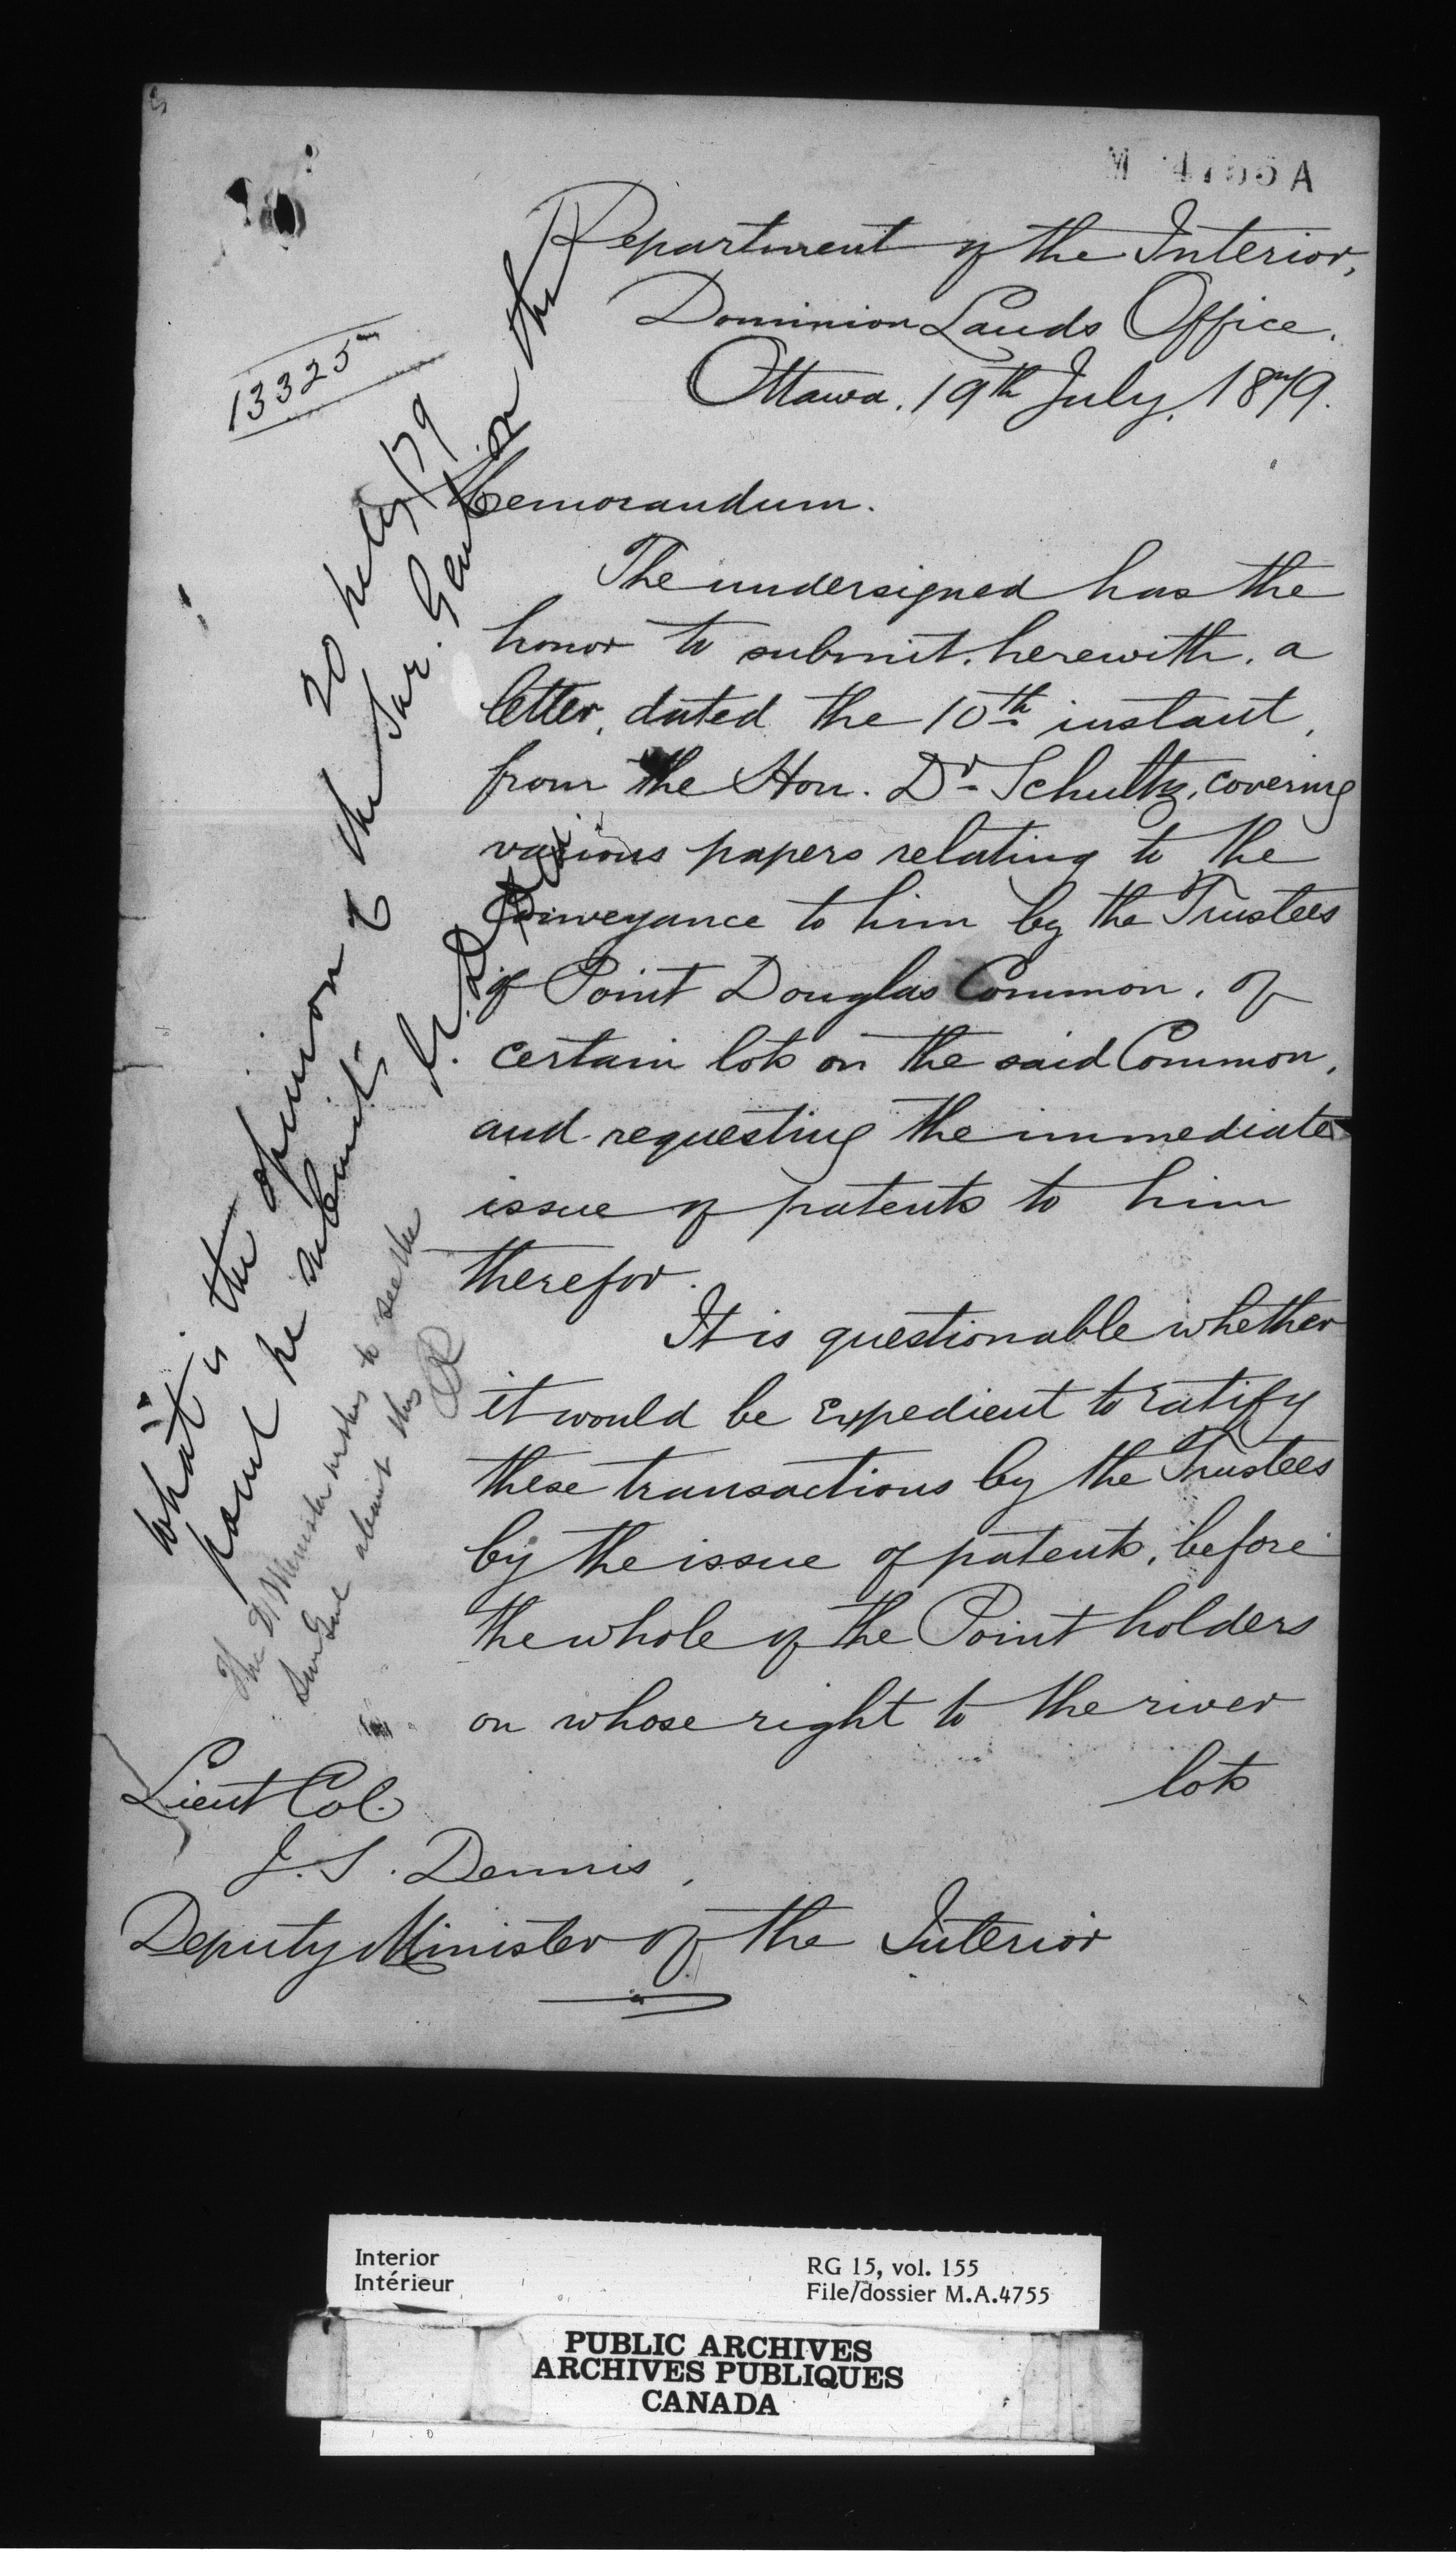 M 4755 A
Department of the Interior,
Dominion Lands Office.
Ottawa, 19th July, 1879.
13325
Memorandum.
The undersigned has the
honor to submit, herewith, a
letter, dated the 10th instant,
from the Hon. Dr Schultz, covering
various papers relating to the
Conveyance to him by the Trustees
of Point Douglas Common, of
certain lots on the said Common,
and requesting the immediate
issue of patents to him
therefor.
It is questionable whether
it would be expedient to ratify
these transactions by the Trustees
by the issue of patents, before
the whole of the Point holders
on whose right to the river
lots
Lieut Col.
J. S. Dennis,
Deputy Minister of the Interior
20 July/79
What is the opinion of the Sur. Genl. on the
point he submits
The D Minister wishes to see the
Sur Genl about this
Interior
Intérieur
RG 15, vol. 155
File/dossier M.A.4755
PUBLIC ARCHIVES
ARCHIVES PUBLIQUES
CANADA